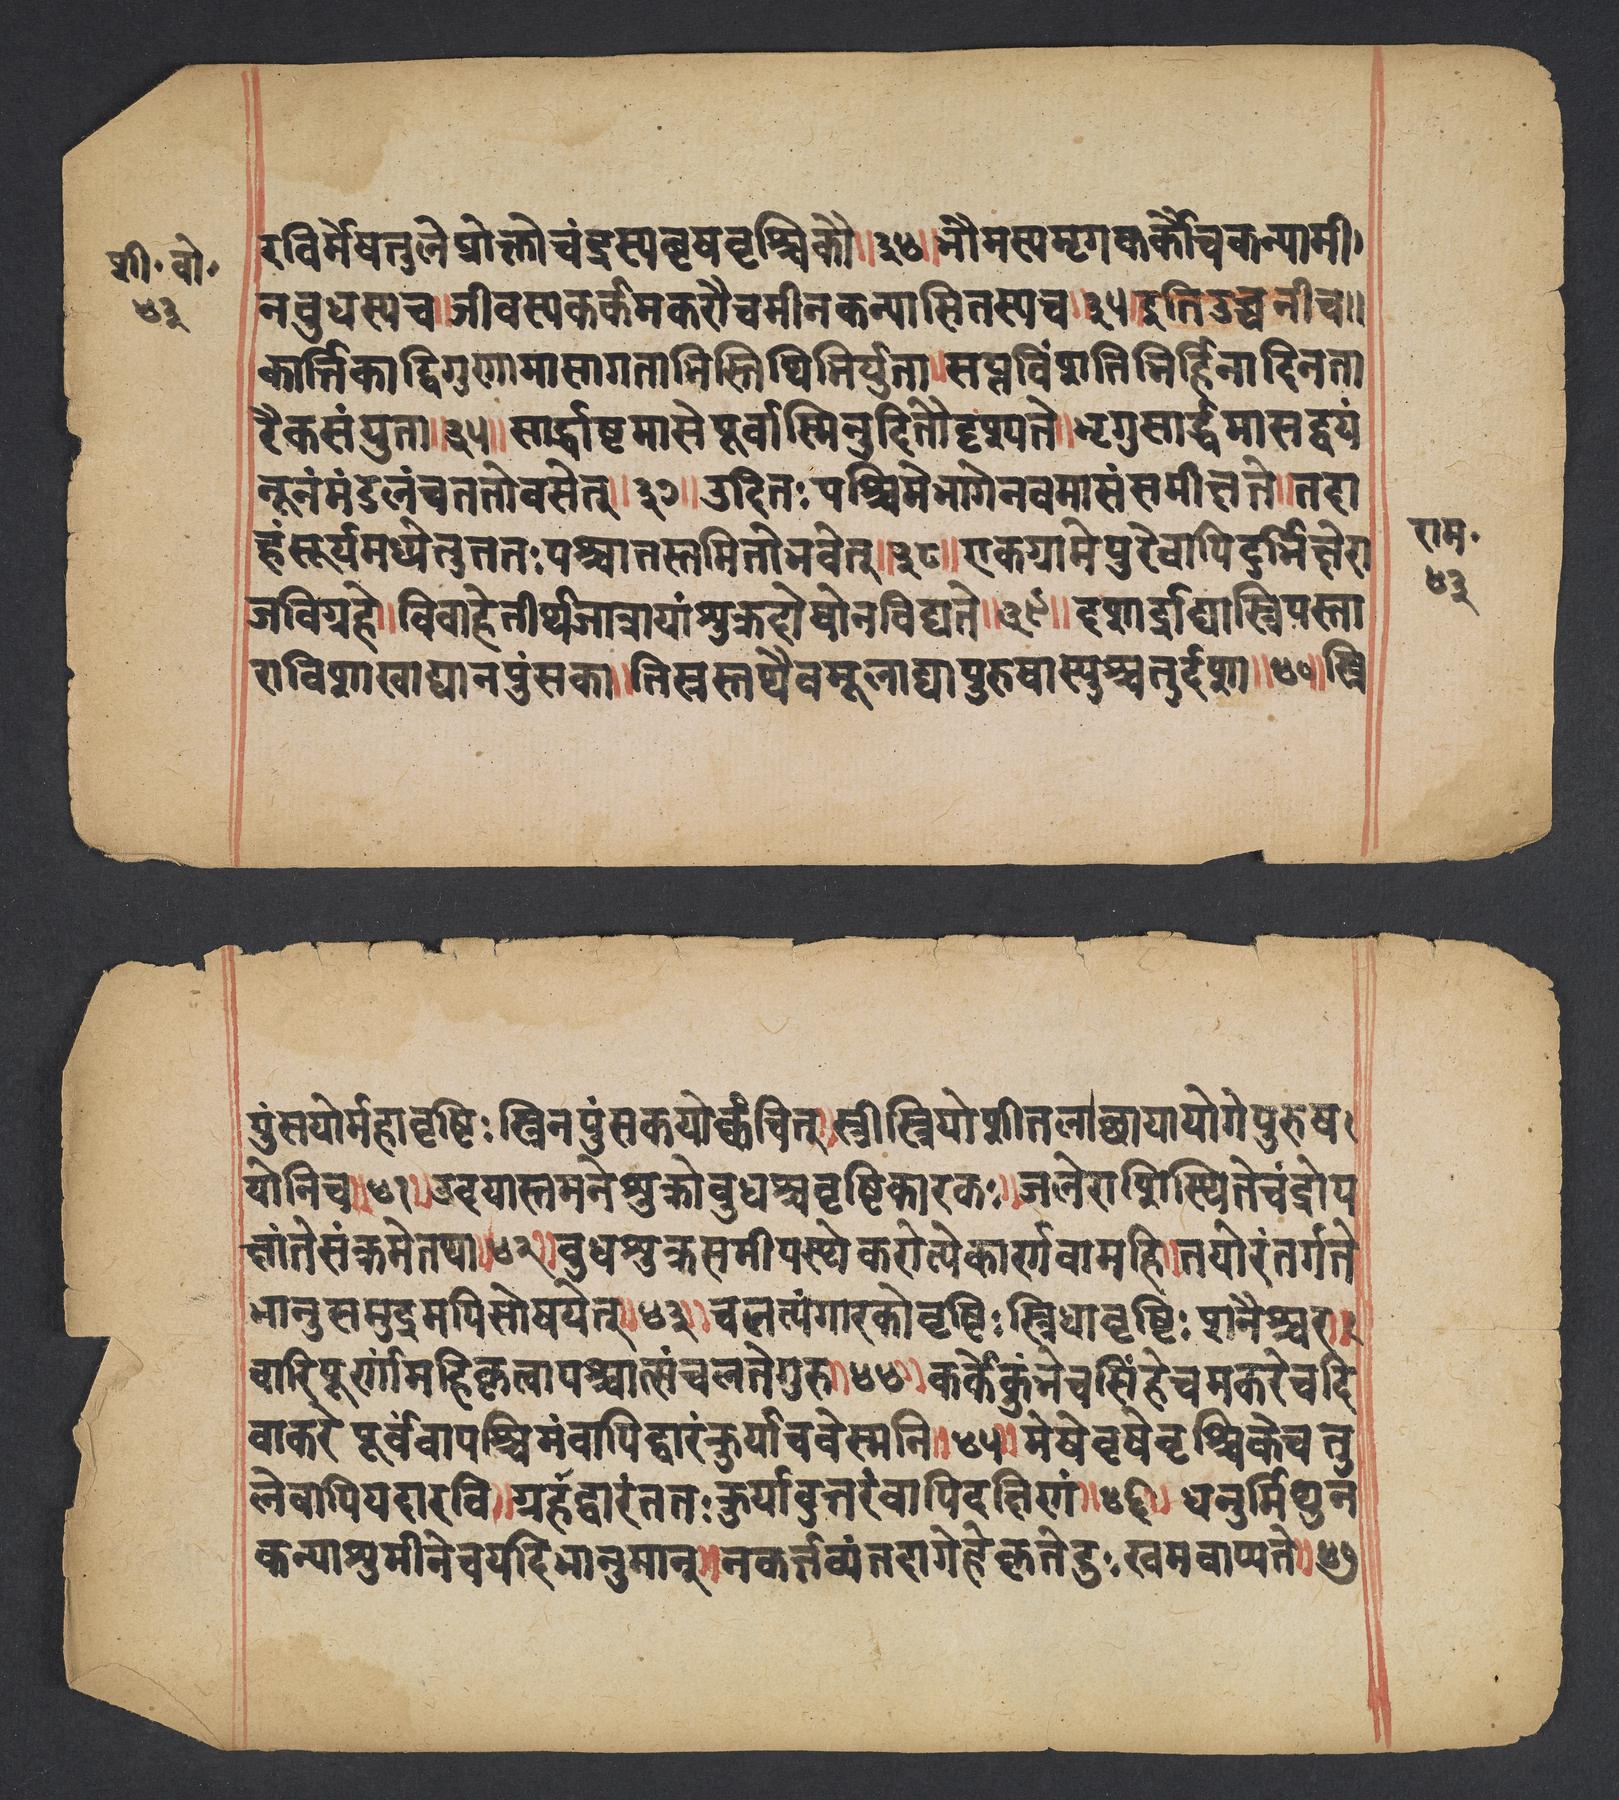 शी॰ वो॰
४३
रविर्मेषतुले प्रोक्तो चंद्रस्य वृषवृश्चिकौ ॥३४॥ भौमस्य मृगकर्कौ च कन्यामी
न वुधस्य च ॥ जीवस्य कर्कमकरौ च मीनकन्या सितस्य च ॥३५॥ इति उच्च नीच ॥
कार्त्तिका द्विगुणा मासा गता मिस्तिथिमिर्युता ॥ सप्तविंशतिमिर्हिना दिनता
रैकसंयुता ॥३५॥ सार्द्धाष्टमासे पूर्वास्मिनुदितौ दृश्यते ॥ भृगु सार्द्धमासद्वयं
नूनं मंडलं च ततो वसेत् ॥३७॥ उदितः पश्चिमे भागे नवमासं समीक्षते ॥ तदा
हं सूर्यमध्ये तु ततः पश्चातस्तमितो भवेत् ॥३८॥ एकग्रामे पुरे वापि दुर्भिक्षे रा
जविग्रहे ॥ विवाहे तीर्थजात्रायां श्रुक्रदोषो न विद्यते ॥३९॥ दशार्द्राद्यास्त्रिपस्ता
रा विशाखाद्या नपुंसका ॥ तिस्रस्तथैव मूलाद्या पुरुषास्युश्चतुर्दशा ॥४०॥ स्त्रि
राम॰
४३
पुंसयोर्महावृष्टिः स्त्रिनपुंसकयो क्कंचित् ॥ स्त्री स्त्रियो शीतलाछाया योगे पुरुष
योनिच ॥४१॥ उदयास्तमने श्रुक्रो वुधश्च वृष्टिकारकः ॥ जलेराशिस्थिते चंद्रो प
क्षांते संक्रमे तथा ॥४२॥ वुधश्रुक्रसमीपस्थे करोत्येकार्णवा महि ॥ तयोरंतर्गते
भानु समुद्रमपि सोषयेत् ॥४३॥ चलत्यंगारको वृष्टिः स्त्रिधा वृष्टिः शनैश्चर ॥
वारिपूर्णां महि कृत्वा पश्चात्संचलते गुरु ॥४४॥ कर्के कुंभे च सिंहे च मकरे च दि
वाकरे पूर्वं वा पश्चिमं वापि द्वारं कुर्याच वेस्मनि ॥४५॥ मेषे वृषे वृश्चिके च तु
ले वापि यदा रवि ॥ ग्रहंद्वारं ततः कुर्यावुत्तरं वापि दक्षिणं ॥४६॥ धनुर्मिथुन
कन्याश्रुमीने च यदि भानुमान् ॥ न कर्त्तव्यं तदा गेहे कृते दुःखमवाप्यते ॥४७